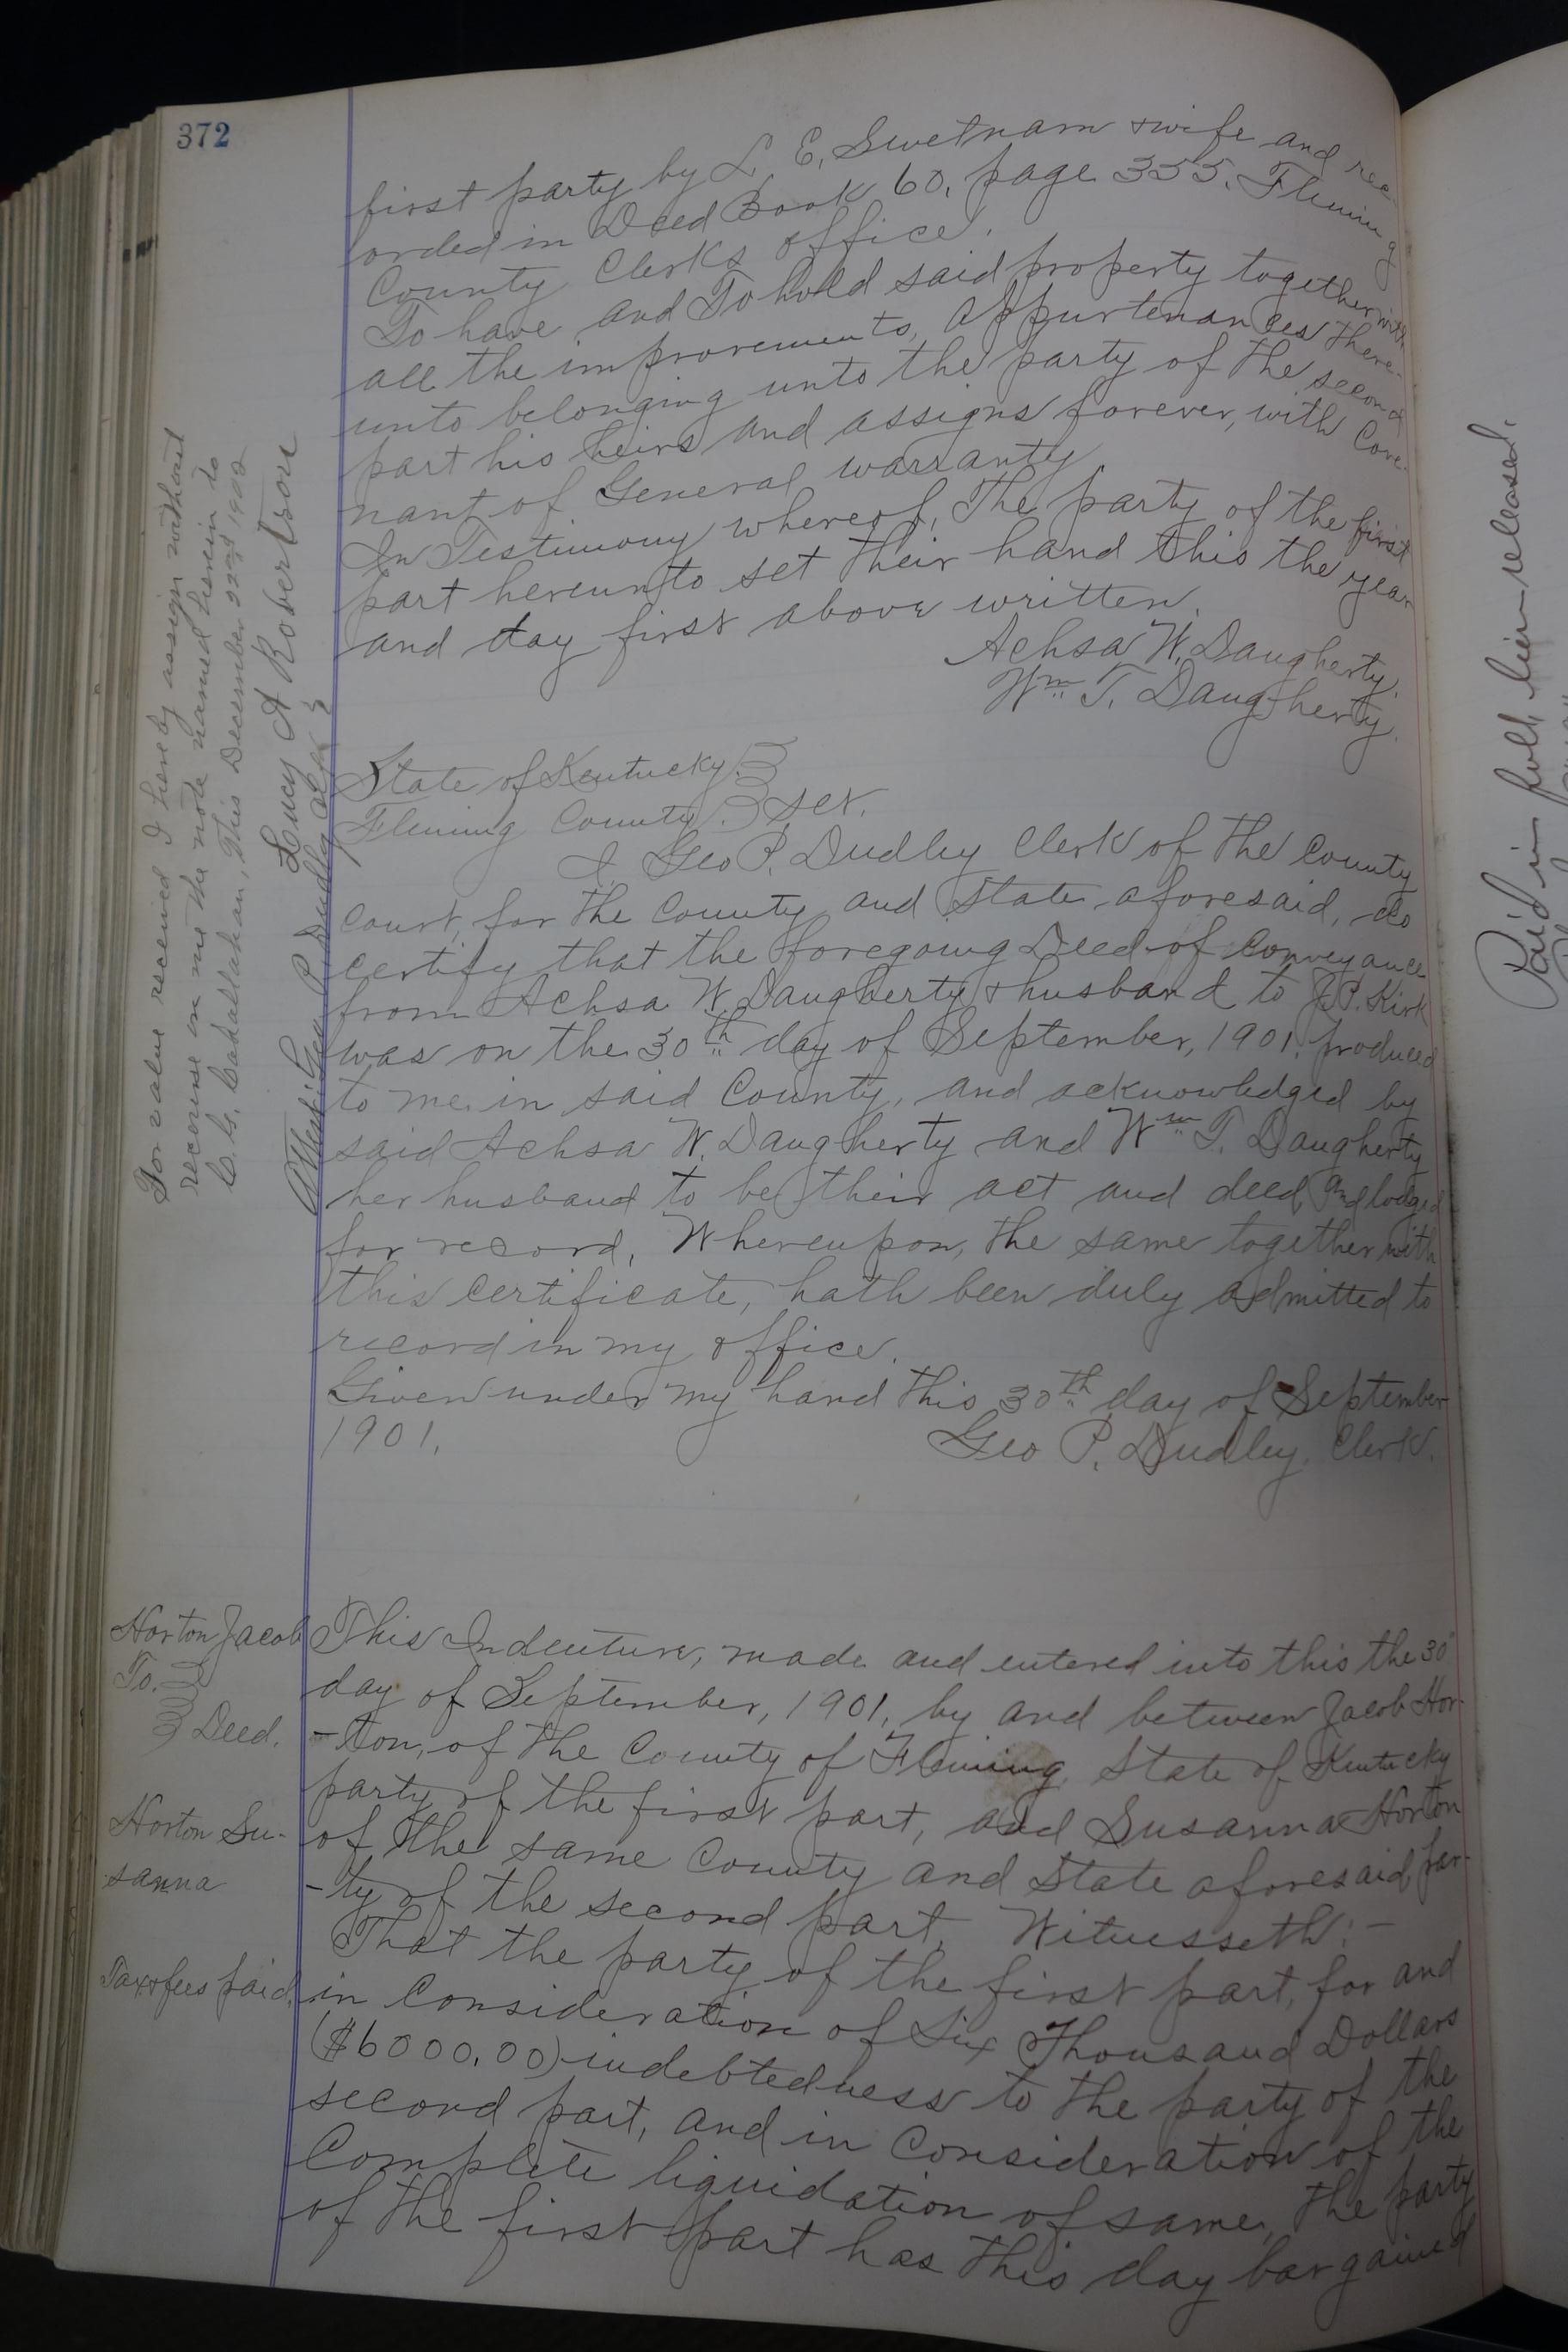 372
first party by L. E. Swetnam & wife and rec-
orded in Deed Book 60, page 355. Fleming
County Clerks office.
To have and To hold said property together with
all the improvements, appurtenances there-
unto belonging unto the party of the second
part his heirs and assigns forever, with Cove-
nant of General warranty.
In Testimony whereof, The party of the first
part hereunto set their hand this the year
and day first above written.
Achsa W. Daugherty.
Wm T. Daugherty.
State of Kentucky.
Fleming County. Sct.
I Geo P. Dudley Clerk of the County
Court, for the County and State aforesaid, do
certify that the foregoing Deed of Conveyance
from Achsa W. Daugherty & husband to J.P. Kirk
was on the 30th day of September, 1901, produced
to me in said County, and acknowledged by
said Achsa W. Daugherty and Wm T. Daugherty
her husband to be their act and deed, and lodged
for record, Whereupon, the same together with
this certificate, hath been duly admitted to
record in my office.
Given under my hand this 30th day of September
1901.
Geo P. Dudley, Clerk.
For value received I hereby assign without
recourse on me the note named herein to
This December 22nd 1902
Lucy A Robertson
Attest: Geo P. Dudley Clerk
Horton Jacob
To.
Deed.
Horton Su-
sanna
Tax & fees paid.
This Indenture, made and entered into this the 30"
day of September, 1901, by and between Jacob Hor-
-ton, of the County of Fleming, State of Kentucky
party of the first part, and Susanna Horton
of the same County and State aforesaid par-
-ty of the second part, Witnesseth:-
That the party of the first part, for and
in Consideration of Six Thousand Dollars
($6000.00) indebtedness to the party of the
second part, and in Consideration of the
Complete liquidation of same, the party
of the first part has this day bargained
Paid in full lien released.